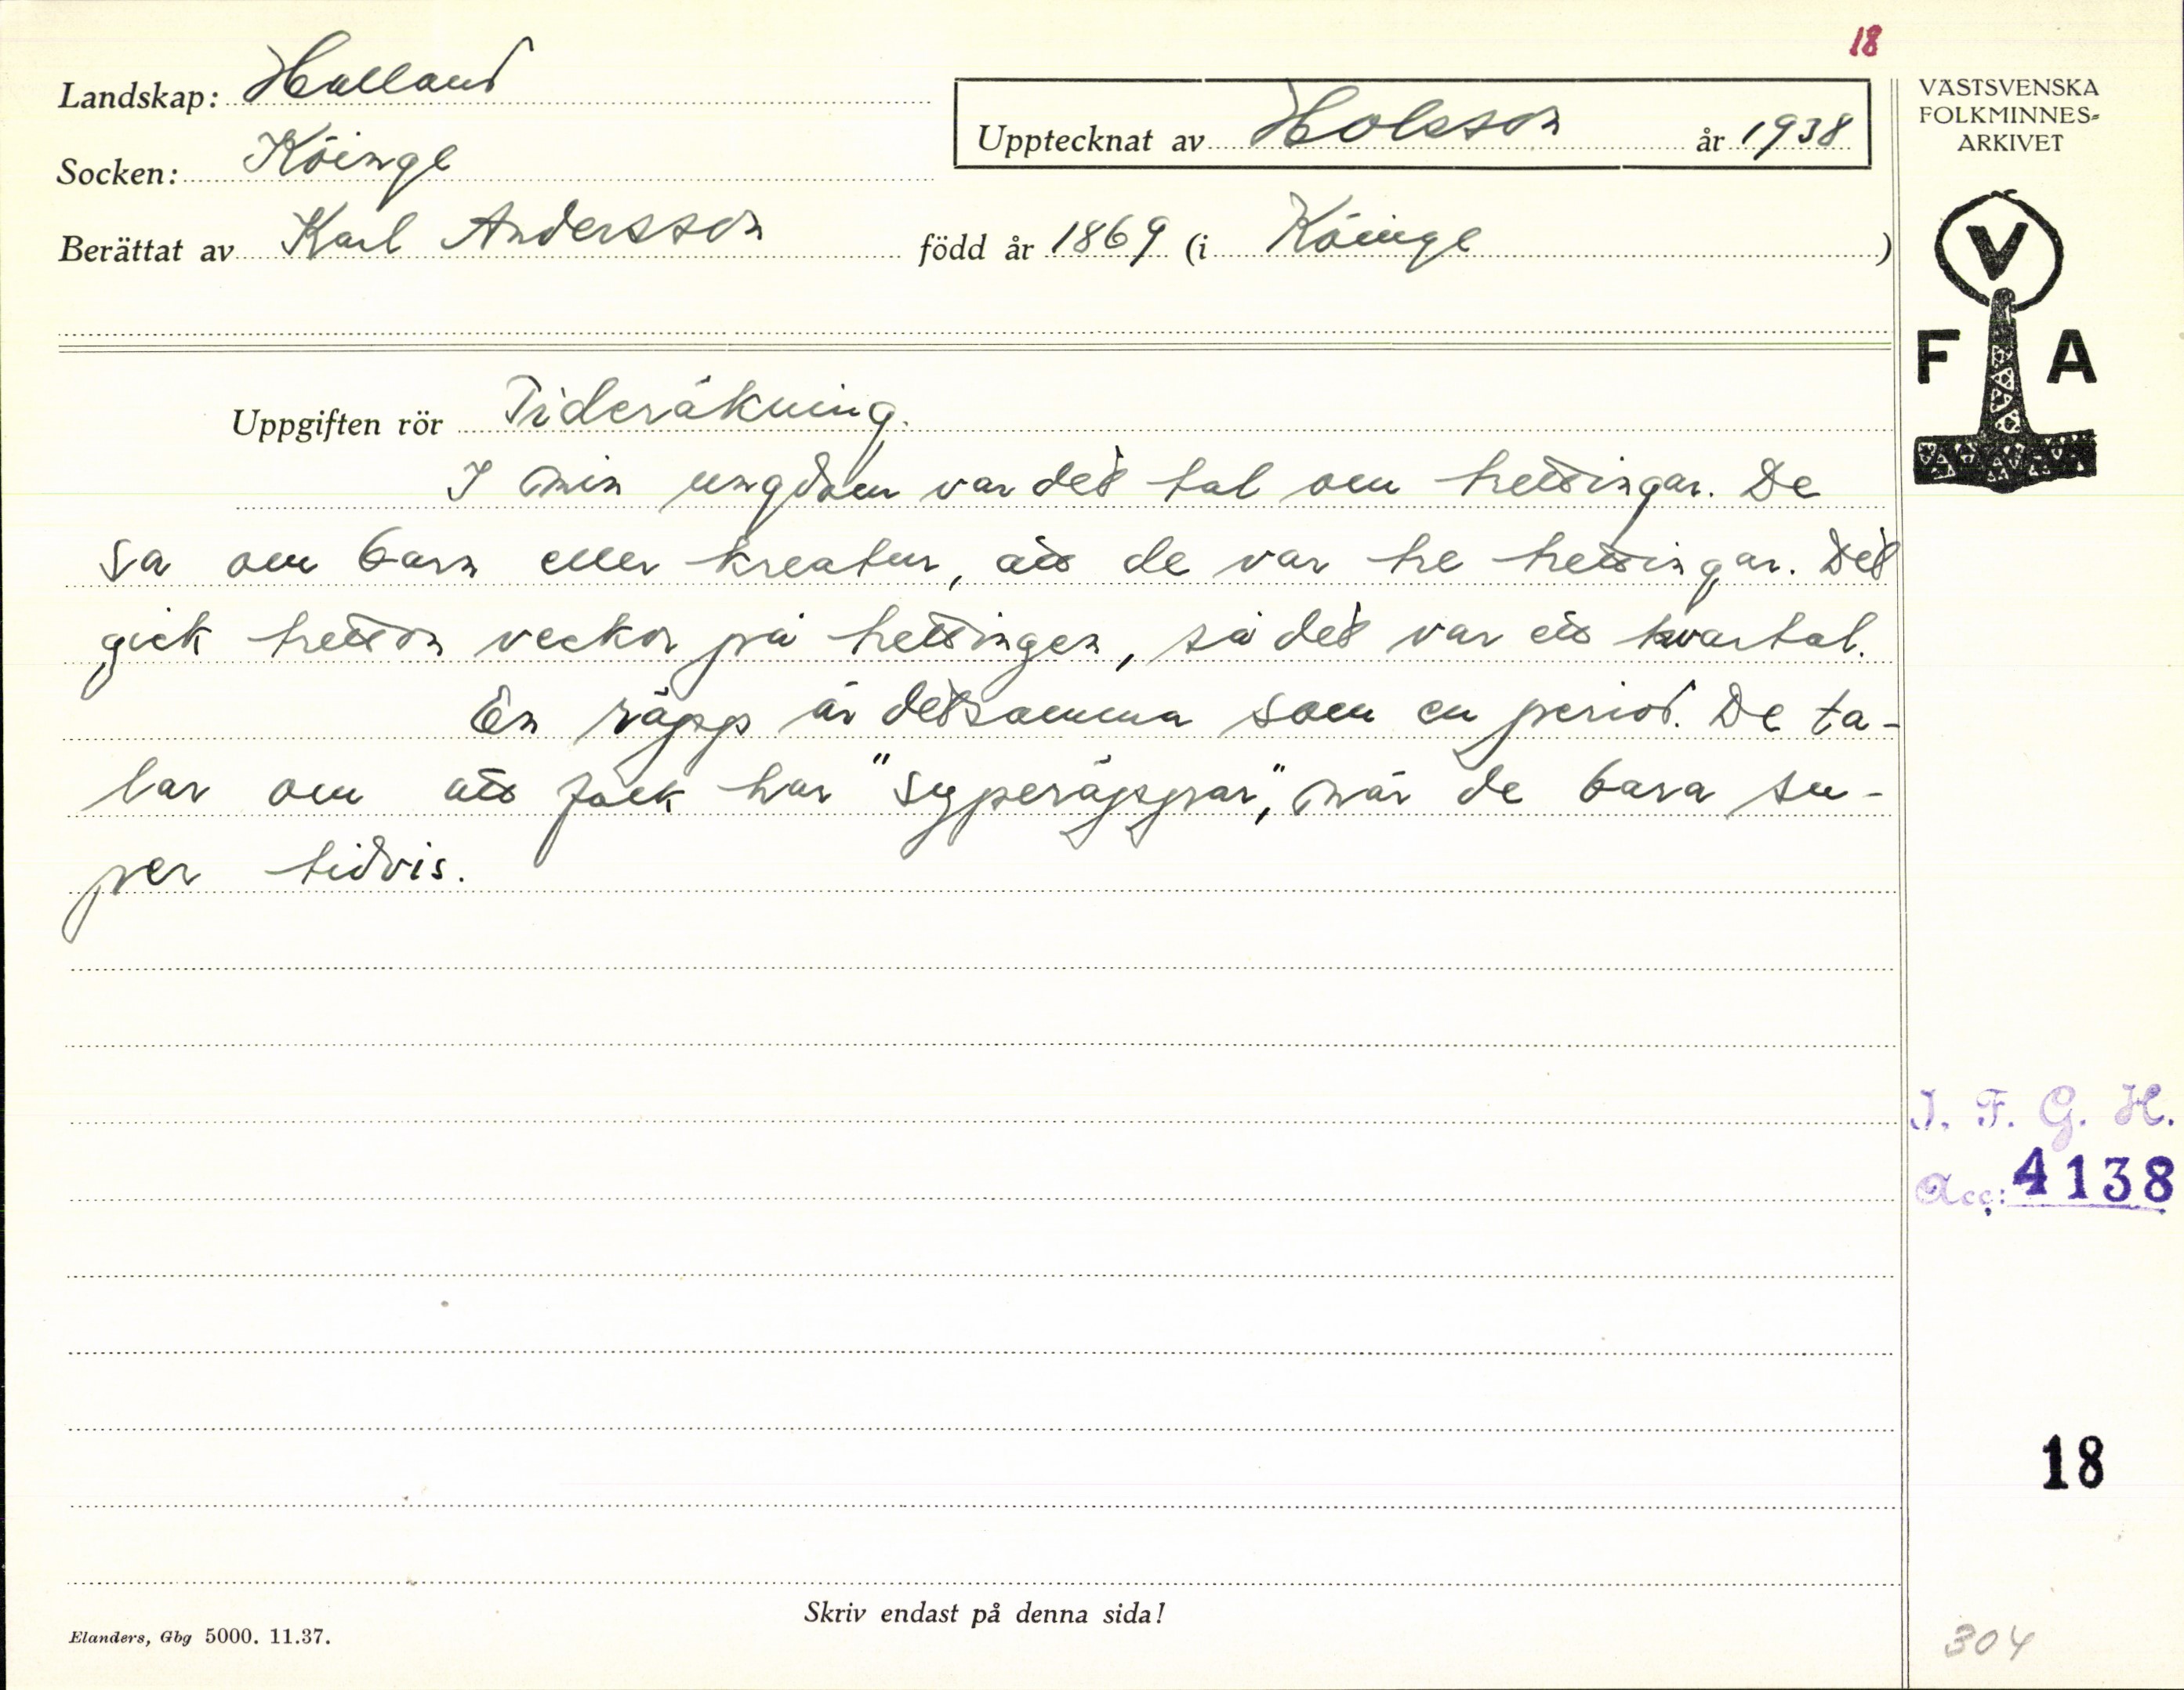 18
Landskap: Halland
Socken: Köinge
Upptecknat av Holsson år 1938
Berättat av Karl Andersson född år 1869 (i Köinge)
VÄSTSVENSKA
FOLKMINNES-
ARKIVET
V
F A
Uppgiften rör Tideräkning.
I min ungdom var det tal om trettingar. De
sa om barn eller kreatur, att de var tre trettingar. Det
gick tretton veckor på trettingen, så det var ett kvartal.
En räpp är detsamma som en period. De ta-
lar om att folk har "syperäppar," när de bara su-
per tidvis.
I. F. G. H.
Acc: 4138
18
Skriv endast på denna sida!
Elanders, Gbg 5000. 11.37.
304